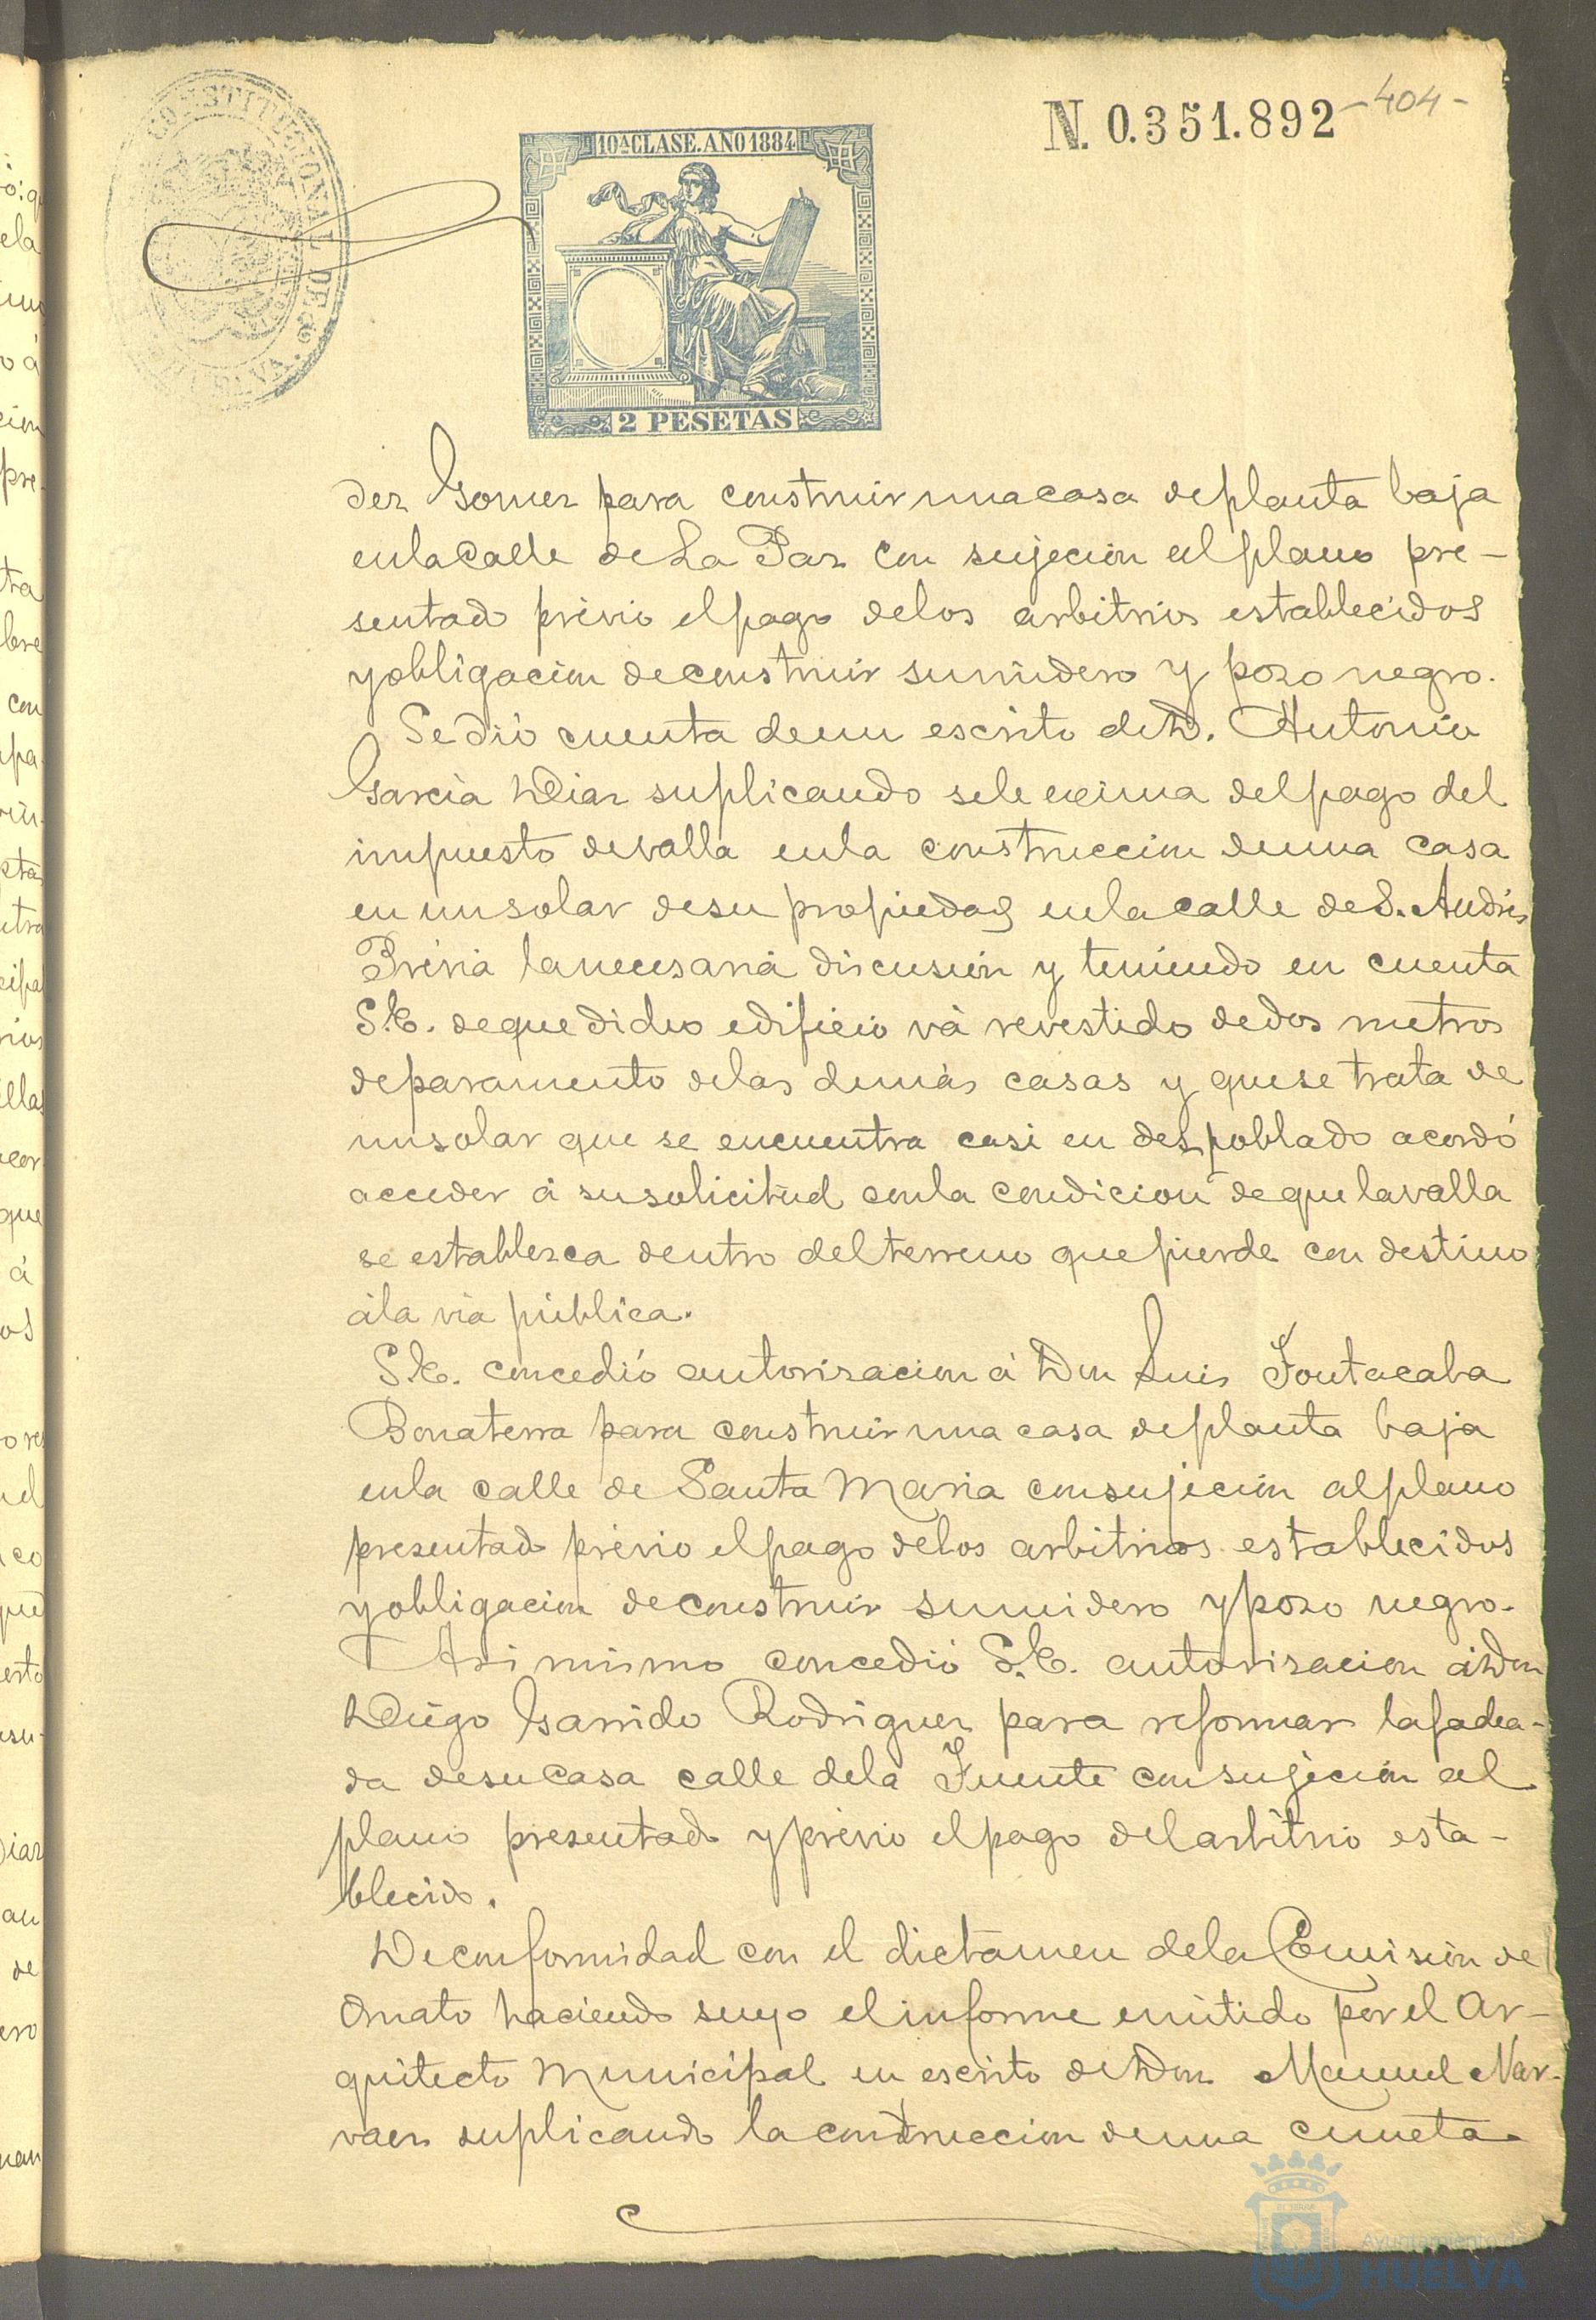 N. 0.351.892 - 404 -
CONSTITUCIONAL DE
10ª CLASE. AÑO 1884
2 PESETAS
dez Gomez para construir una casa de planta baja
en la Calle de La Paz con sujecion al plano pre-
sentado prévio el pago de los arbitrios establecidos
y obligacion de construir sumidero y pozo negro.
Se dió cuenta de un escrito de D. Antonio
Garcia Diaz suplicando se le exima del pago del
impuesto de valla en la construccion de una casa
en un solar de su propiedad en la calle de S. Andrés
Prévia la necesaria discusión y teniendo en cuenta
S.E. de que dicho edificio vá revestido de dos metros
de paramento de las demás casas y que se trata de
un solar que se encuentra casi en despoblado acordó
acceder á su solicitud con la condicion de que la valla
se establezca dentro del terreno que pierde con destino
á la via pública.
S.E. concedió autorizacion á Don Luis Fontacaba
Bonaterra para construir una casa de planta baja
en la calle de Santa Maria con sujeción al plano
presentado prévio el pago de los arbitrios establecidos
y obligacion de construir sumidero y pozo negro.
Asi mismo concedió S.E. autorizacion á Don
Diego Garrido Rodriguez para reformar la facha-
da de su Casa calle de la Fuente con sujeción al
plano presentado y prévio el pago del arbitrio esta-
blecido.
De conformidad con el dictamen de la Comisión de
Ornato haciendo suyo el informe emitido por el Ar-
quitecto Municipal en escrito de Don Manuel Nar-
vaez suplicando la construccion de una cuneta
Ayuntamiento de
HUELVA